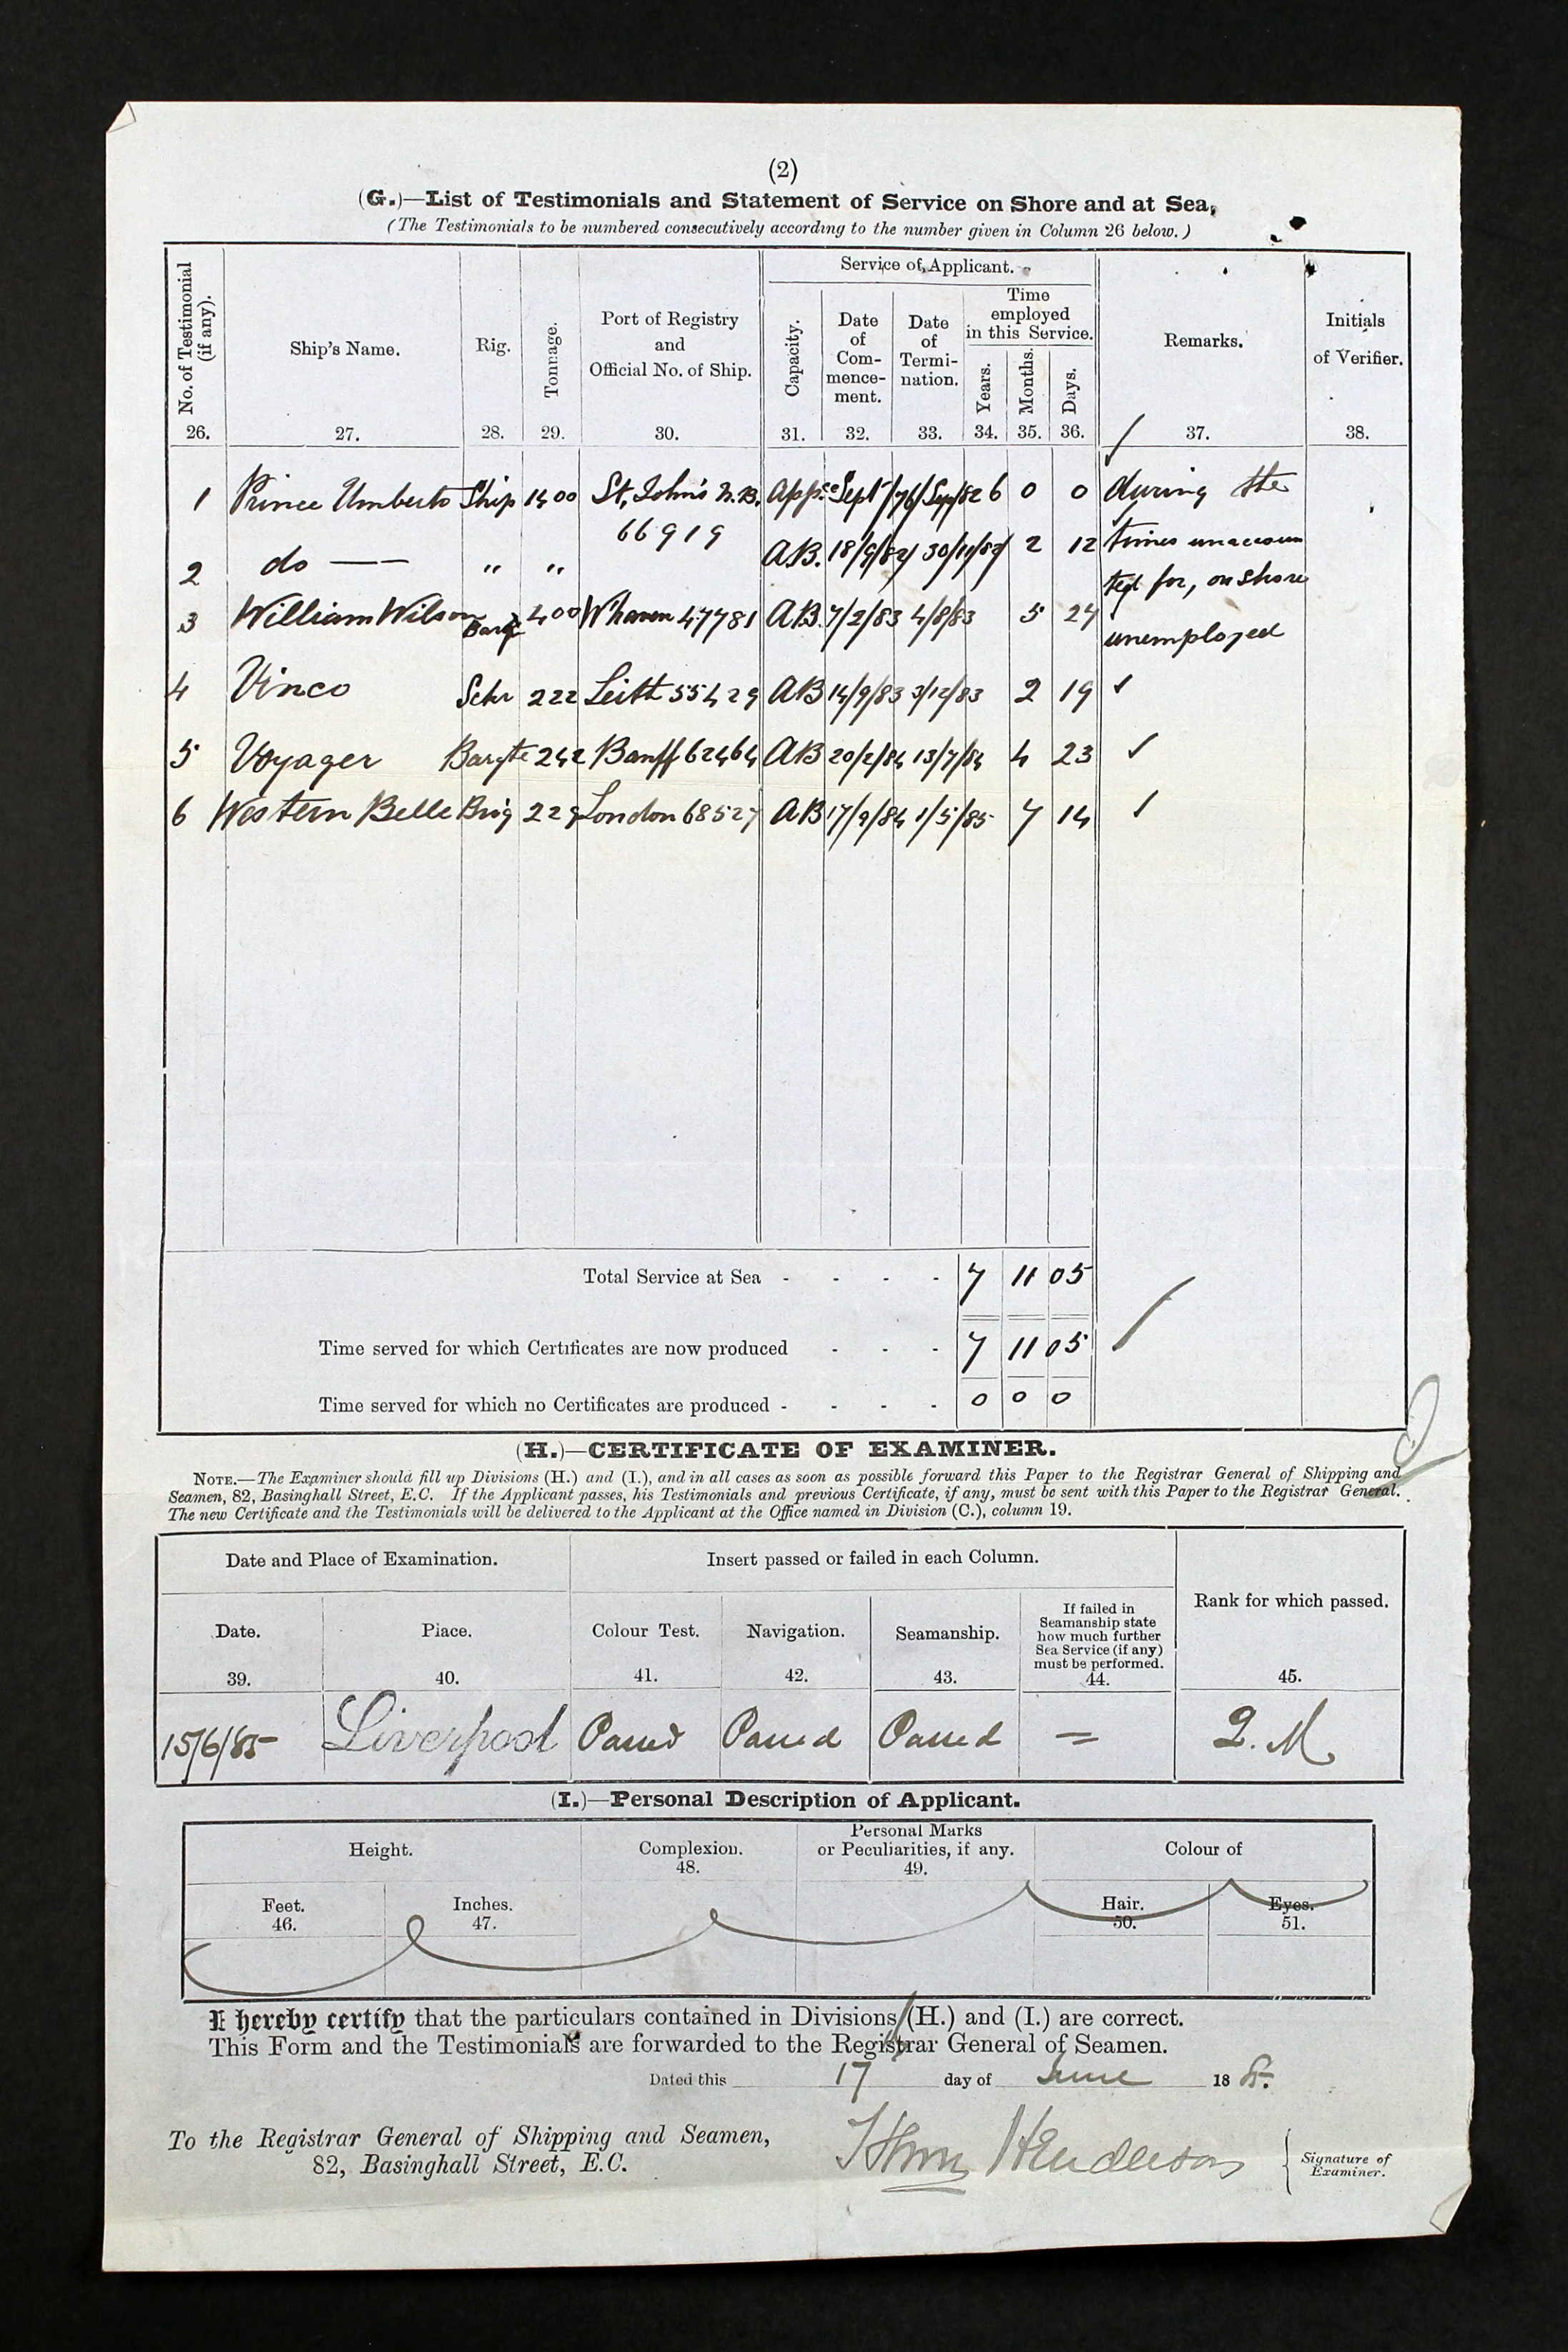 (2)
(G.)—List of Testimonials and Statement of Service on Shore and at Sea,
(The Testimonials to be numbered consecutively according to the number given in Column 26 below.)
No. of Testimonial (if any). 26.
Ship's Name. 27.
Rig. 28.
Tonnage. 29.
Port of Registry and Official No. of Ship. 30.
Service of Applicant.
Capacity. 31.
Date of Com-mence-ment. 32.
Date of Termi-nation. 33.
Time employed in this Service.
Years. 34.
Months. 35.
Days. 36.
Remarks. 37.
Initials of Verifier. 38.
1 Prince Umberto Ship 1400 St. John's N.B. 66919 Appce Sept/76 Sep/82 6 0 0 during the
2 do —— " " A.B. 18/9/82 30/11/82 2 12 times unaccoun
ted for, on shore
3 William Wilson Barq 400 Whaven 47781 A.B. 7/2/83 4/8/83 5 24 unemployed
4 Vinco Schr 222 Leith 55429 AB 14/9/83 3/12/83 2 19 ✓
5 Voyager Barqte 242 Banff 62464 AB 20/2/84 13/7/84 4 23 ✓
6 Western Belle Brig 229 London 68527 AB 17/9/84 1/5/85 7 14 ✓
Total Service at Sea - - - - 7 11 05
Time served for which Certificates are now produced - - - 7 11 05
Time served for which no Certificates are produced - - - - 0 0 0
(H.)—CERTIFICATE OF EXAMINER.
NOTE.—The Examiner should fill up Divisions (H.) and (I.), and in all cases as soon as possible forward this Paper to the Registrar General of Shipping and
Seamen, 82, Basinghall Street, E.C. If the Applicant passes, his Testimonials and previous Certificate, if any, must be sent with this Paper to the Registrar General.
The new Certificate and the Testimonials will be delivered to the Applicant at the Office named in Division (C.), column 19.
Date and Place of Examination.
Insert passed or failed in each Column.
Rank for which passed. 45.
Date. 39.
Place. 40.
Colour Test. 41.
Navigation. 42.
Seamanship. 43.
If failed in Seamanship state how much further Sea Service (if any) must be performed. 44.
15/6/85 Liverpool Passed Passed Passed = 2. M
(I.)—Personal Description of Applicant.
Height.
Complexion. 48.
Personal Marks or Peculiarities, if any. 49.
Colour of
Feet. 46.
Inches. 47.
Hair. 50.
Eyes. 51.
I hereby certify that the particulars contained in Divisions (H.) and (I.) are correct.
This Form and the Testimonials are forwarded to the Registrar General of Seamen.
Dated this 17 day of June 1885.
To the Registrar General of Shipping and Seamen,
82, Basinghall Street, E.C.
Henderson
Signature of Examiner.